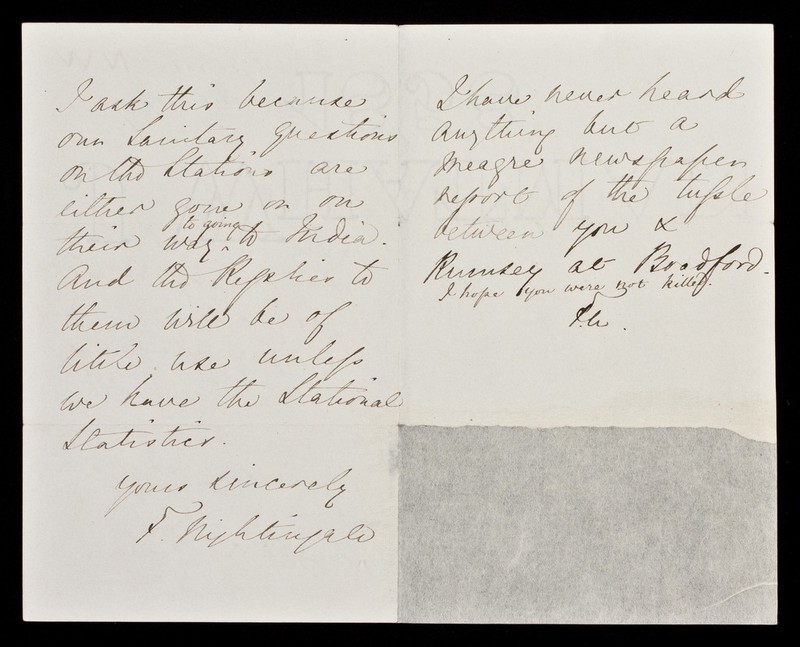 I ask this because
our Sanitary Questions
on the Stations are
either gone on or
to going
their way ^ to India.
And the Replies to
them will be of
little use unless
we have the Stational
Statistics.
yours sincerely
F. Nightingale
I have never heard
anything but a
meagre newspaper
report of the tussle
between you &
Rumsey at Bradford.
I hope you were not killed.
F.N.